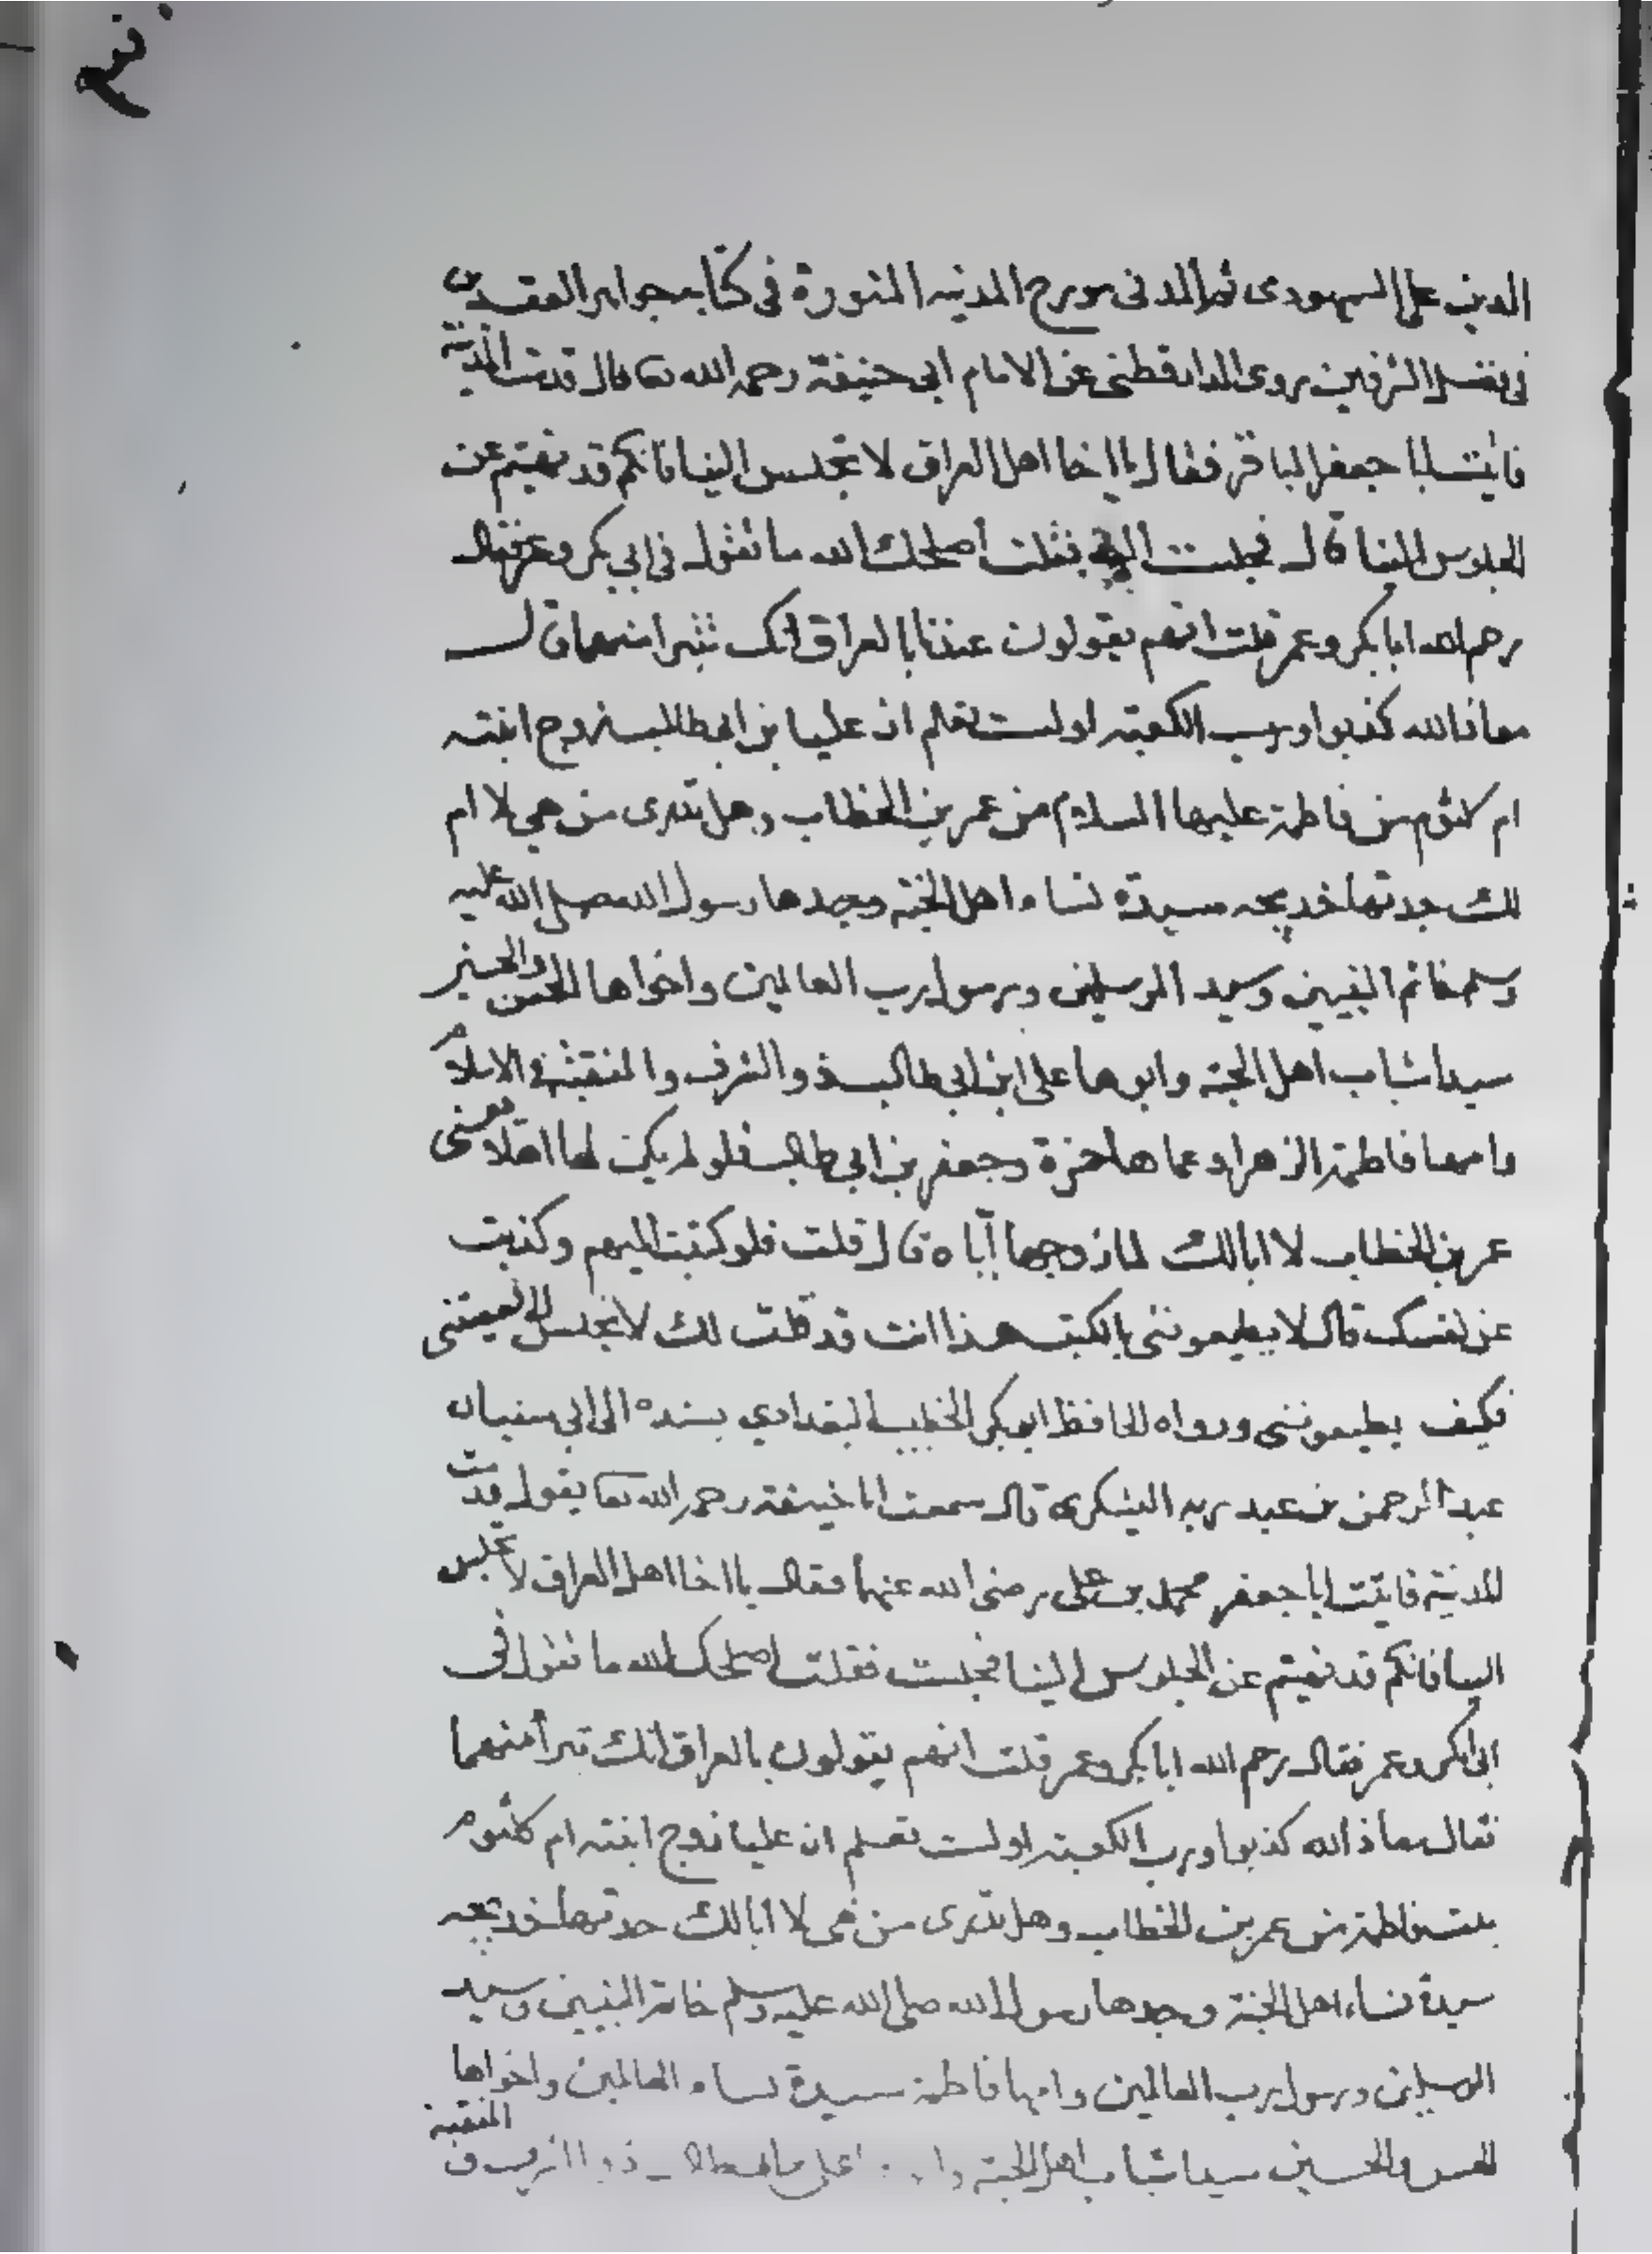 الدين على السمهودى ثم المدنى مورخ المدينه المنورة فى كتابه جواهر العقدين
فى فضل الشرفين روى الدارقطنى عن الامام ابى حنيفة رحمه الله تعا قال قدمت المدينة
فاتيت ابا جعفر الباقر فقال يا اخا اهل العراق لا تجلس الينا فانكم قد نهيتم عن
الجلوس الينا قال فجلست اليه فقلت اصلحك الله ما تقول فى ابى بكر وعمر فقال
رحم الله ابا بكر وعمر قلت انهم يقولون عندنا بالعراق انك تتبرا منهما قال
معاذ الله كذبوا ورب الكعبته اولست تعلم ان عليا بن ابى طالب زوج ابنته
ام كلثوم من فاطمة عليها السلام من عمر بن الخطاب وهل تدرى من هى لا ام
لك جدتها خديجه سيدة نساء اهل الجنة وجدها رسول الله صلى الله عليه
وسلم خاتم النبيين وسيد المرسلين ورسول رب العالمين واخواها الحسن والحسين
سيدا شباب اهل الجنة وابوها على ابن ابى طالب ذو الشرف والمنقبة فى الاسلام
وامها فاطمة الزهرا وعماها حمزة وجعفر بن ابى طالب فلو لم يكن لها اهلا يعنى
عمر بن الخطاب لا ابالك لما زوجها اباه قال قلت فلو كتبت اليهم وكذبت
عن نفسك قال لا يطيعوننى بالكتب هذا انت قد قلت لك لا تجلس الى فعصيتنى
فكيف يطيعوننى ورواه الحافظ ابو بكر الخطيب البغدادي بسنده الى ابى سفيان
عبد الرحمن بن عبد ربه اليشكرى قال سمعت ابا حنيفة رحمه الله تعا يقول قدمت
المدينة فاتيت ابا جعفر محمد بن على رضى الله عنهما فقال يا اخا اهل العراق لا تجلس
الينا فانكم قد نهيتم عن الجلوس الينا فجلست فقلت اصلحك الله ما تقول فى
ابى بكر وعمر فقال رحم الله ابا بكر وعمر قلت انهم يقولون بالعراق انك تبرأ منهما
فقال معاذ الله كذبوا ورب الكعبته اولست تعلم ان عليا زوج ابنته ام كلثوم
بنت فاطمة من عمر بن الخطاب وهل تدرى من هى لا ابالك جدتها خديجه
سيدة نساء اهل الجنة وجدها رسول الله صلى الله عليه وسلم خاتم النبيين وسيد
المرسلين ورسول رب العالمين وامها فاطمة سيدة نساء العالمين واخواها
الحسن والحسين سيدا شباب اهل الجنة على ذو الشرف و المنقبة